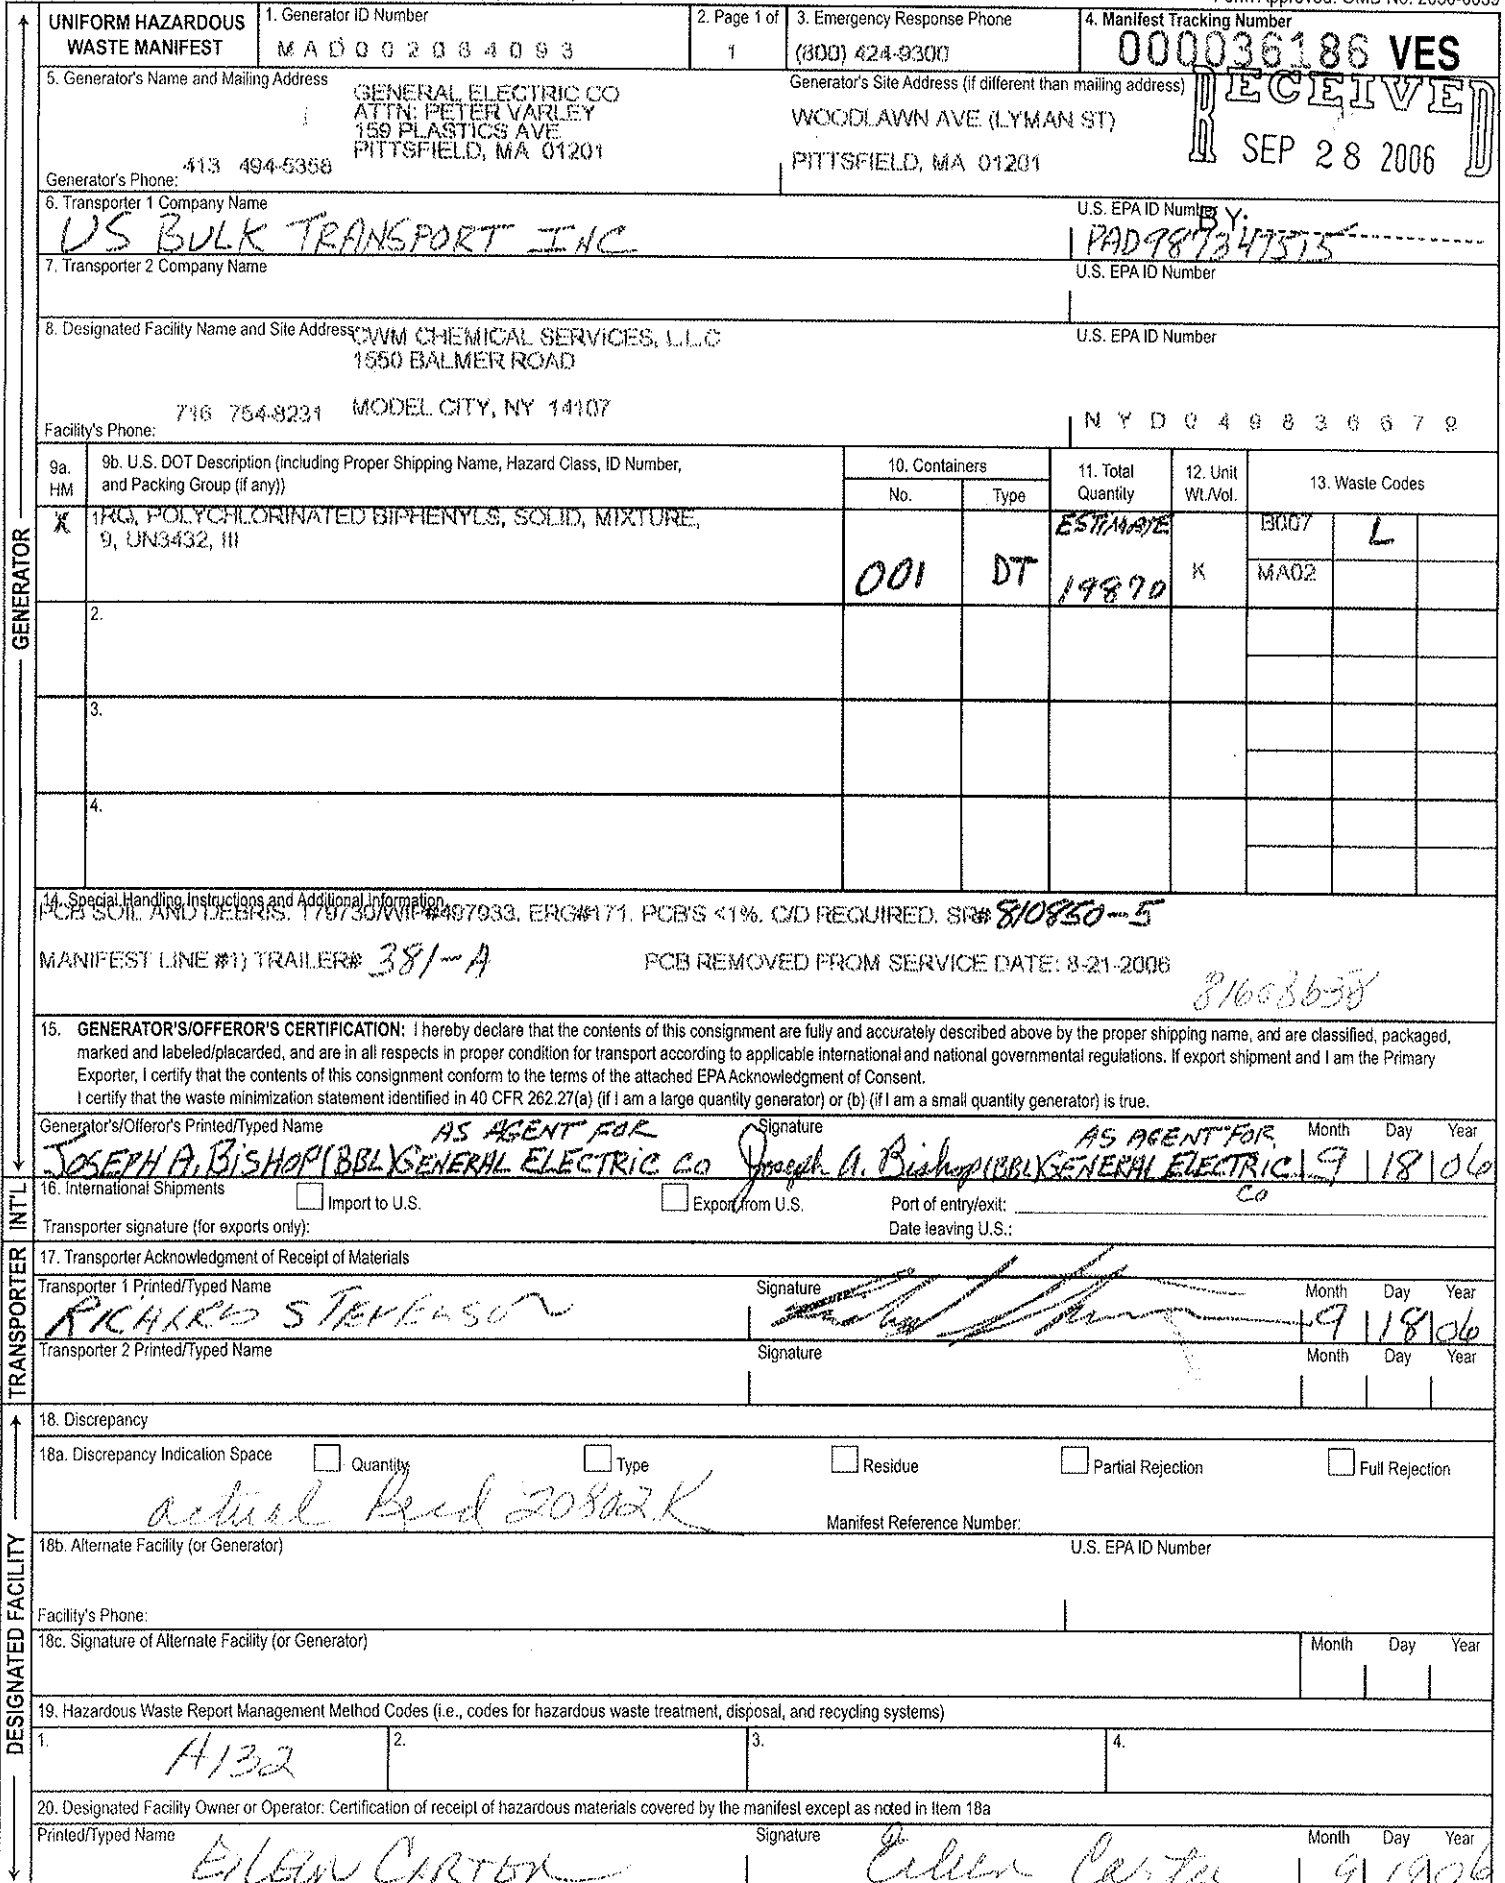 UNIFORM HAZARDOUS WASTE MANIFEST
1. Generator ID Number
MAD002084093
2. Page 1 of
1
3. Emergency Response Phone
(800) 424-9300
4. Manifest Tracking Number
000036186 VES
5. Generator's Name and Mailing Address
GENERAL ELECTRIC CO
ATTN: PETER VARLEY
159 PLASTICS AVE
PITTSFIELD, MA 01201
Generator's Phone: 413 494-5358
Generator's Site Address (if different than mailing address)
WOODLAWN AVE (LYMAN ST)
PITTSFIELD, MA 01201
RECEIVED
SEP 28 2006
BY:
6. Transporter 1 Company Name
US BULK TRANSPORT INC
U.S. EPA ID Number
PAD987347515
7. Transporter 2 Company Name
U.S. EPA ID Number
8. Designated Facility Name and Site Address
CWM CHEMICAL SERVICES, L.L.C
1550 BALMER ROAD
MODEL CITY, NY 14107
716 754-8231
Facility's Phone:
U.S. EPA ID Number
NYD049836679
9a. HM
9b. U.S. DOT Description (including Proper Shipping Name, Hazard Class, ID Number, and Packing Group (if any))
10. Containers
No.
Type
11. Total Quantity
12. Unit Wt./Vol.
13. Waste Codes
X
1. RQ, POLYCHLORINATED BIPHENYLS, SOLID, MIXTURE,
9, UN3432, III
001
DT
ESTIMATE
19870
K
B007
L
MA02
2.
3.
4.
14. Special Handling Instructions and Additional Information
PCB SOIL AND DEBRIS. 179730/WIP#497933. ERG#171. PCB'S <1%. C/D REQUIRED. SR# 810850-5
MANIFEST LINE #1) TRAILER# 381-A
PCB REMOVED FROM SERVICE DATE: 8-21-2006
15. GENERATOR'S/OFFEROR'S CERTIFICATION: I hereby declare that the contents of this consignment are fully and accurately described above by the proper shipping name, and are classified, packaged,
marked and labeled/placarded, and are in all respects in proper condition for transport according to applicable international and national governmental regulations. If export shipment and I am the Primary
Exporter, I certify that the contents of this consignment conform to the terms of the attached EPA Acknowledgment of Consent.
I certify that the waste minimization statement identified in 40 CFR 262.27(a) (if I am a large quantity generator) or (b) (if I am a small quantity generator) is true.
Generator's/Offeror's Printed/Typed Name
AS AGENT FOR
JOSEPH A. BISHOP (BBL) GENERAL ELECTRIC CO
Signature
AS AGENT FOR
Joseph A. Bishop (BBL) GENERAL ELECTRIC CO
Month Day Year
9 18 06
16. International Shipments
Import to U.S.
Export from U.S.
Port of entry/exit:
Transporter signature (for exports only):
Date leaving U.S.:
17. Transporter Acknowledgment of Receipt of Materials
Transporter 1 Printed/Typed Name
RICHARD STEVENSON
Signature
Month Day Year
9 18 06
Transporter 2 Printed/Typed Name
Signature
Month Day Year
18. Discrepancy
18a. Discrepancy Indication Space
Quantity
Type
Residue
Partial Rejection
Full Rejection
actual Recd 20802K
Manifest Reference Number:
18b. Alternate Facility (or Generator)
U.S. EPA ID Number
Facility's Phone:
18c. Signature of Alternate Facility (or Generator)
Month Day Year
19. Hazardous Waste Report Management Method Codes (i.e., codes for hazardous waste treatment, disposal, and recycling systems)
1.
H132
2.
3.
4.
20. Designated Facility Owner or Operator: Certification of receipt of hazardous materials covered by the manifest except as noted in Item 18a
Printed/Typed Name
EILEEN CARTER
Signature
Eileen Carter
Month Day Year
9 19 06
GENERATOR
INT'L
TRANSPORTER
DESIGNATED FACILITY